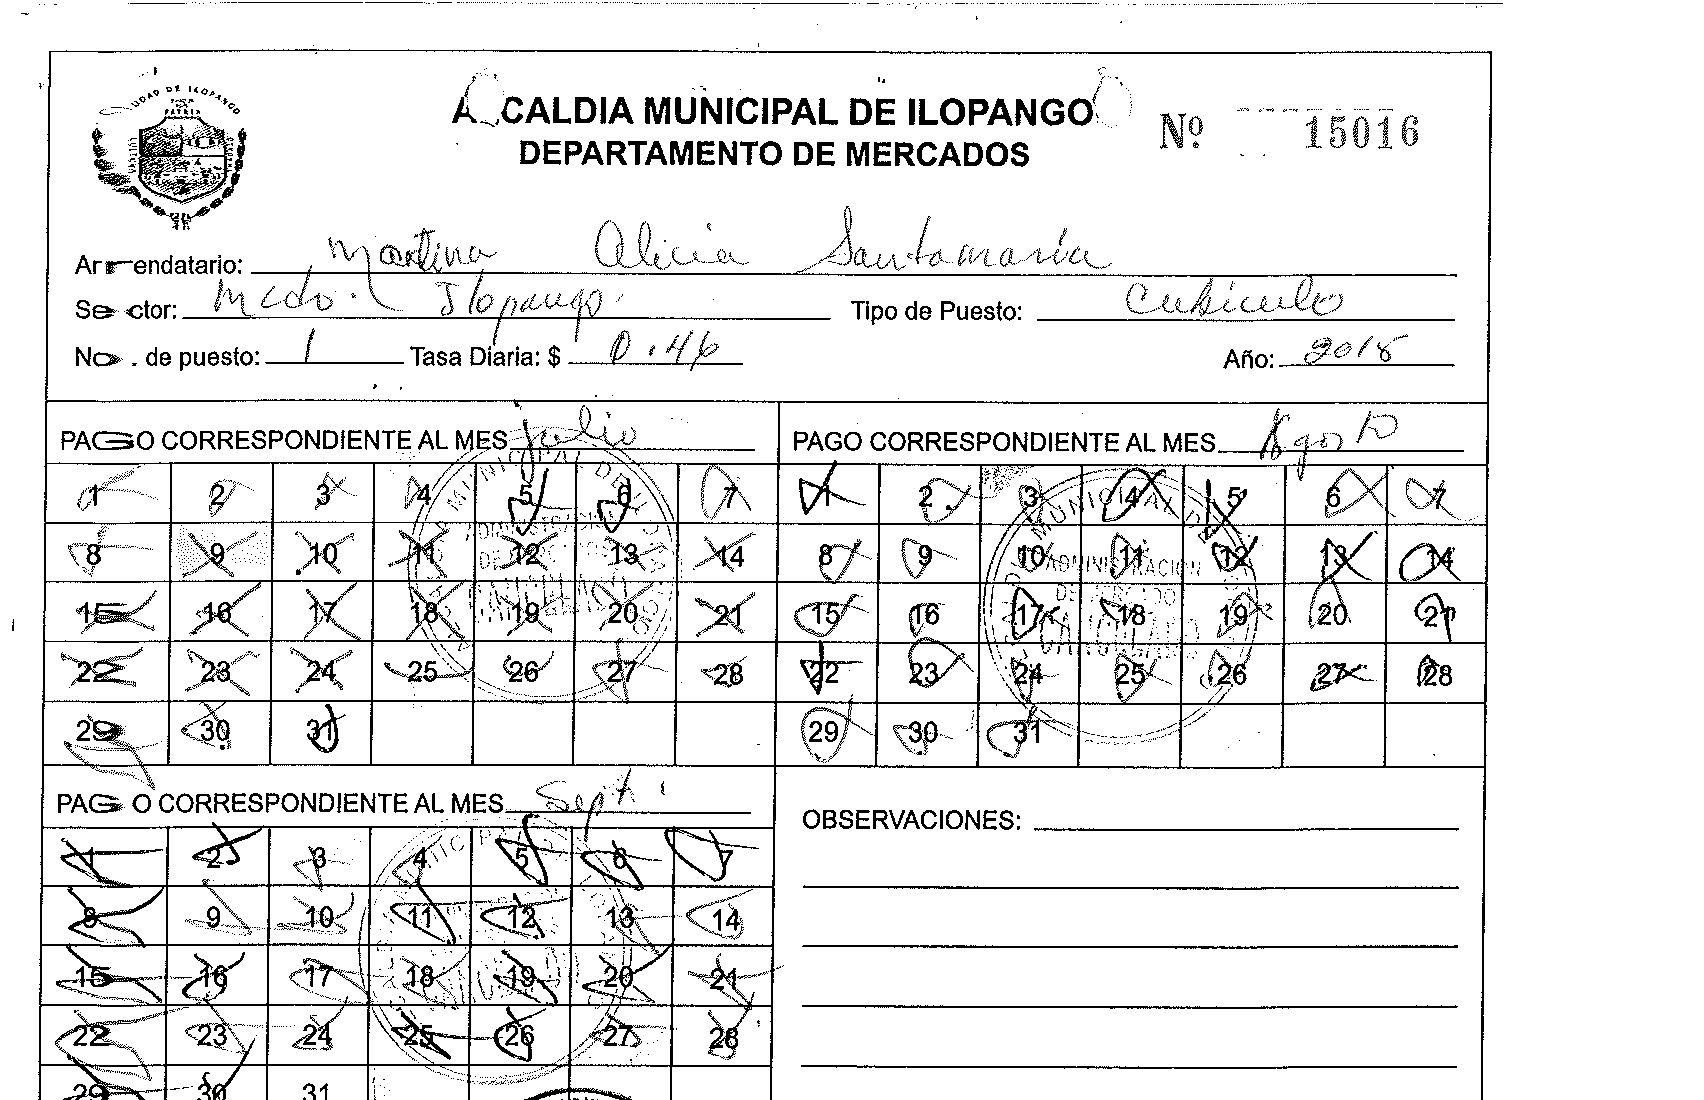 ALCALDIA MUNICIPAL DE ILOPANGO
DEPARTAMENTO DE MERCADOS
Nº 15016
Arrendatario: Martina Alicia Santamaría
Sector: Mcdo. Ilopango.
Tipo de Puesto: Cubiculo
No. de puesto: 1 Tasa Diaria: $ 0.46
Año: 2018
PAGO CORRESPONDIENTE AL MES Julio
1 2 3 4 5 6 7
8 9 10 11 12 13 14
15 16 17 18 19 20 21
22 23 24 25 26 27 28
29 30 31
PAGO CORRESPONDIENTE AL MES Agosto
1 2 3 4 5 6 7
8 9 10 11 12 13 14
15 16 17 18 19 20 21
22 23 24 25 26 27 28
29 30 31
PAGO CORRESPONDIENTE AL MES Sept.
1 2 3 4 5 6 7
8 9 10 11 12 13 14
15 16 17 18 19 20 21
22 23 24 25 26 27 28
29 30 31
OBSERVACIONES: